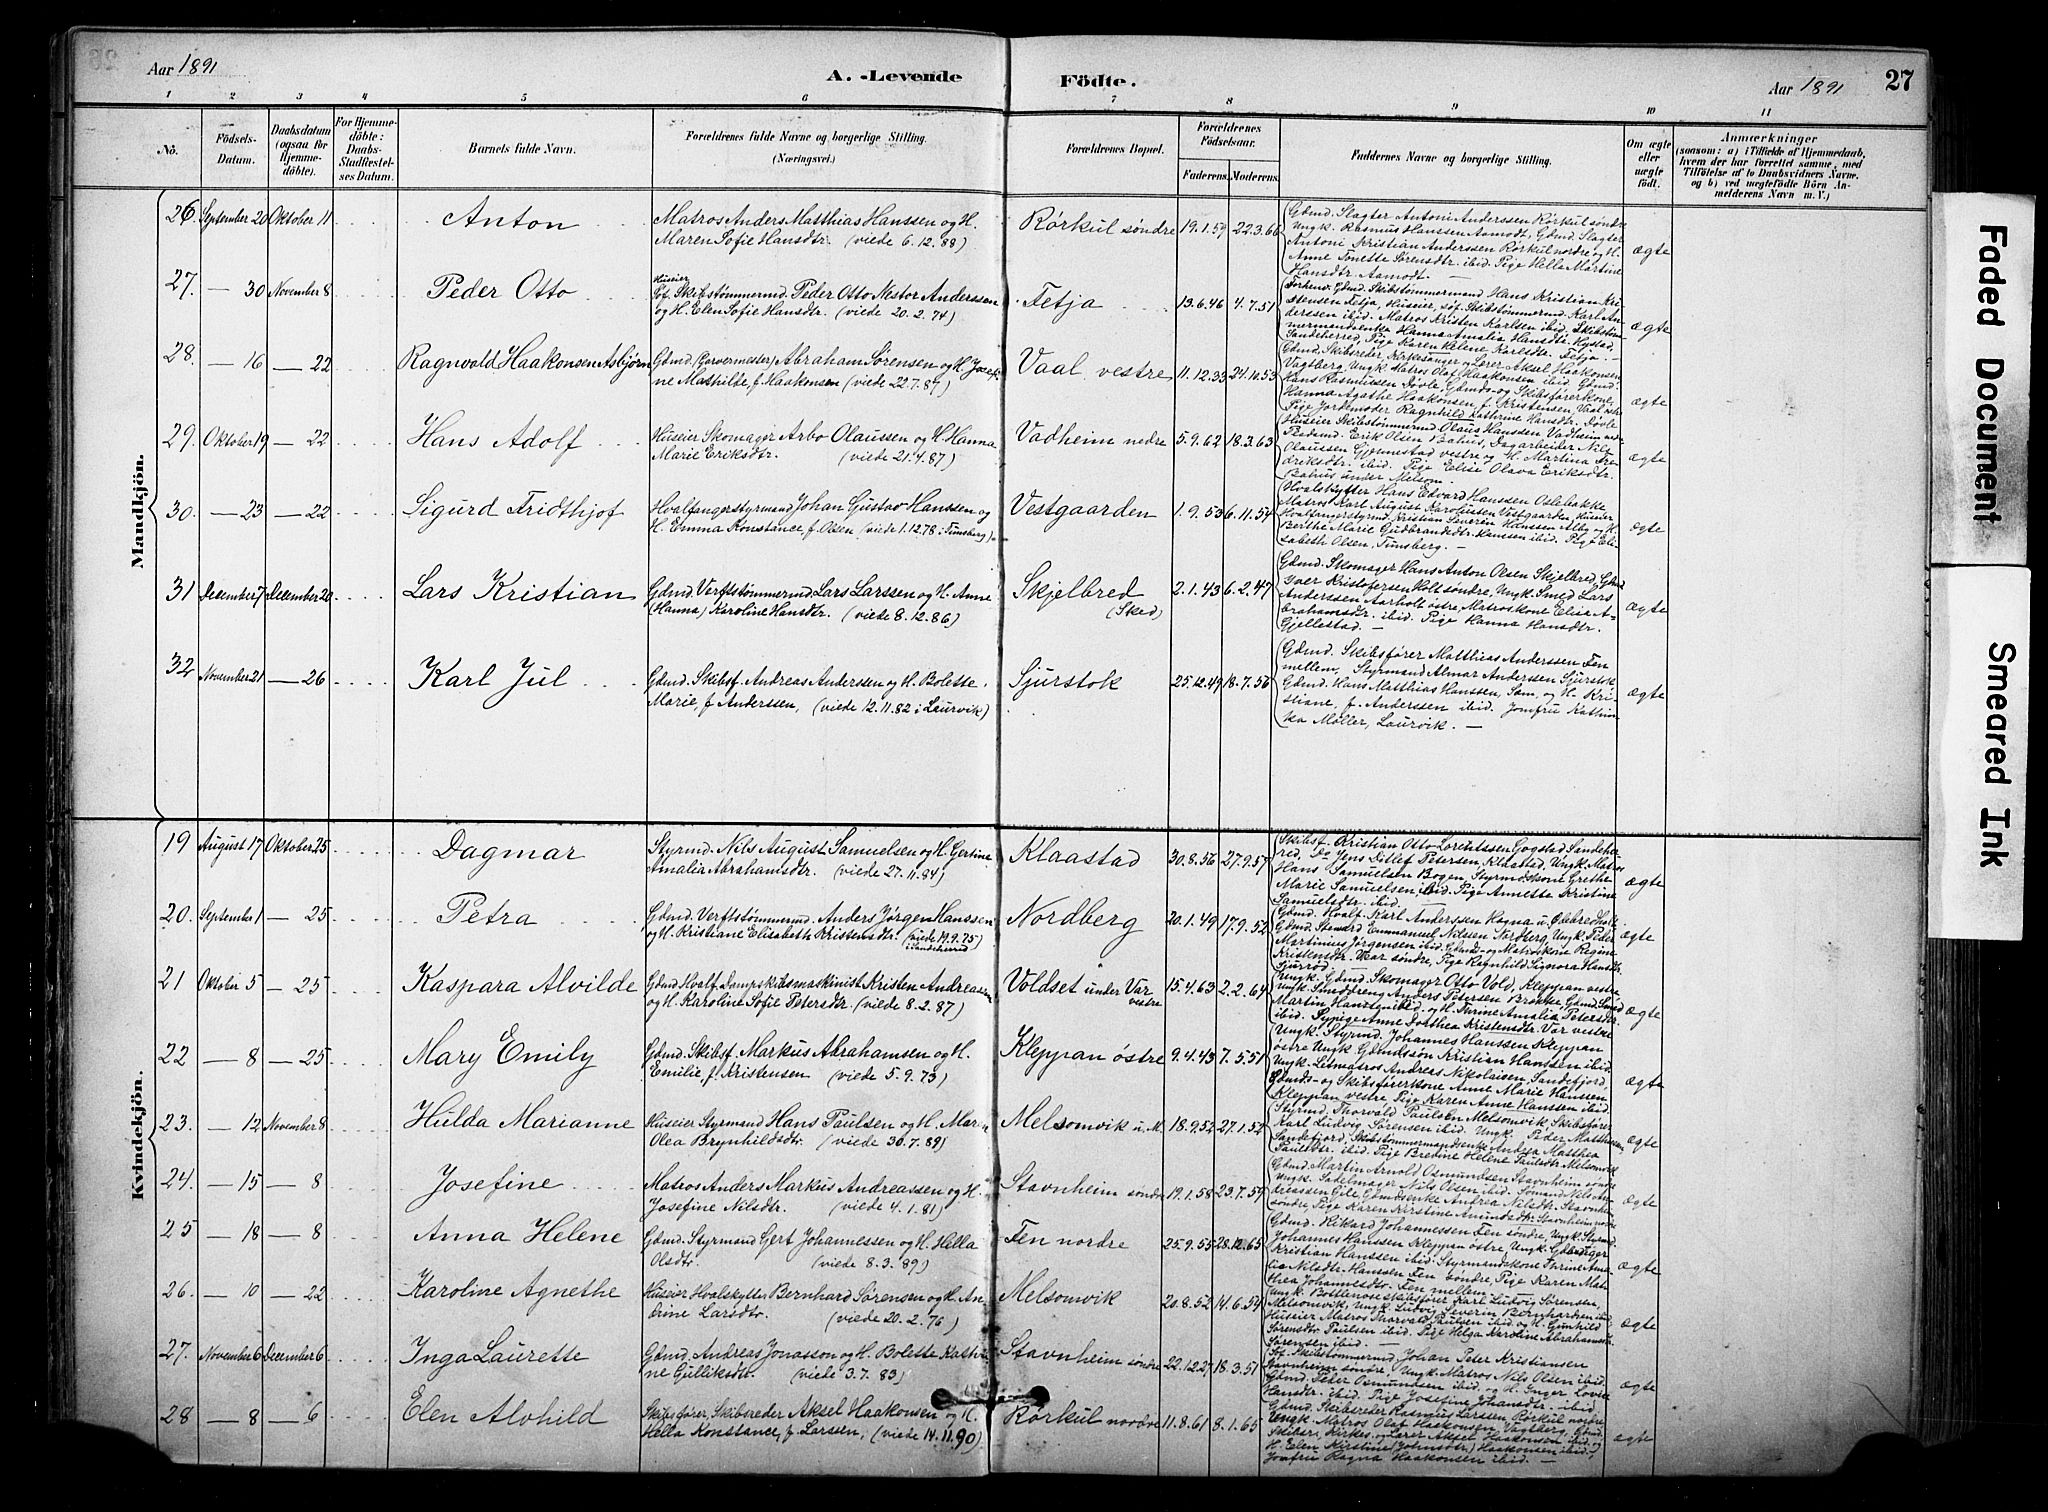 Aar 1891
A. -Levende
Födte.
Aar 1891
27
1 2 3 4 5 6 7 8 9 10 11
No.
Födsels-
Datum.
Daabsdatum
(ogsaa for
Hjemme-
döbte).
For Hjemme-
döbte:
Daabs-
Stadfestel-
ses Datum.
Barnets fulde Navn.
Forældrenes fulde Navne og borgerlige Stilling.
(Næringsvei.)
Forældrenes Bopæl.
Forældrenes
Födselsaar.
Faderens. Moderens.
Faddernes Navne og borgerlige Stilling.
Om ægte
eller
uægte
födt.
Anmærkninger
(saasom: a) i Tilfælde af Hjemmedaab,
hvem der har forrettet samme, med
Tilföielse af to Daabsvidners Navne.
og b) ved uægtefödte Börn An-
melderens Navn m. V.)
Mandkjön.
26 September 20 Oktober 11 Anton
Matros Anders Matthias Hanssen og H.
Maren Sofie Hansdtr. (viede 6.12.88)
Rørkul søndre 19.1.59 22.3.66
Gdmd. Slagter Antoni Anderssen Rørkul søndre
Ungk. Rasmus Hanssen Aamodt, Gdmd. Slagter
Antoni Kristian Anderssen Rørkul nordre og H.
Anne Tonette Sørensdtr. ibid. Pige Hella Martine
Hansdtr. Aamodt. —
ægte
27. — 30 November 8 Peder Otto
Huseier
Sof. Skibstømmermd. Peder Otto Nestor Anderssen
og H. Elen Sofie Hansdtr. (viede 20.2.74)
Fetja 13.6.46 4.7.51
Forhenv. Gdmd. Skibstømmermand Hans Kristian Kri-
stensen Fetja, Huseier, sof. Skibstømmermd. Karl An-
derssen ibid. Matros Kristen Karlsen ibid. Skibstøm-
mermandsenke Hanna Amalia Hansdtr. Nystad,
Sandeherred, Pige Karen Helene Karlsdtr. Fetja. —
ægte
28. — 16 — 22 Ragnvald Haakonsen Asbjørn
Gdmd. (Farvermester) Abraham Sørensen og H. Josefi-
ne Mathilde, f. Haakonsen (viede 22.7.87)
Vaal vestre 11.12.33 24.10.53
Gdmd. Skibsreder, Kirkesanger og Lærer Aksel Haakonsen
Vagtberg, Ungk. Matros Olaf Haakonsen ibid. Gdmd.
Hans Rasmussen Døvle, Gdmds- og Skibsførerkone
Hanna Agathe Haakonsen, f. Kristensen, Vaal østre
Pige Jordemoder Ragnhild Kathrine Hansdtr. Døvle
ægte
29. Oktober 19 — 22 Hans Adolf
Huseier Skomager Arbo Olaussen og H. Hanna
Marie Eriksdtr. (viede 21.4.87)
Vadheim nedre 5.9.62 18.3.63
Huseier Skibstømmermd. Olaus Hanssen Vadheim ned-
Pladsmd. Erik Olsen Bahus, Dagarbeider Nils
Olaussen Gjønnestad vestre og H. Martina Fre-
driksdtr. ibid. Pige Elise Olava Eriksdtr.
Bahus under Melsom.
ægte
30. — 23 — 22 Sigurd Fridthjof
Hvalfangerstyrmand Johan Gustav Hanssen og
H. Emma Konstance, f. Olsen (viede 1.12.78 i Tunsberg).
Vestgaarden 1.9.53 6.11.54
Hvalskytter Hans Edvard Hanssen Oslebakke
Matros Karl August Karoliussen Vestgaarden, Huseier
Hvalfangerstyrmd. Kristian Severin Hanssen Alby og H.
Berthe Marie Gudbrandsdtr. Hanssen ibid. Pige Eli-
sabeth Olsen, Tunsberg. —
ægte
31 December 7 December 20 Lars Kristian
Gdmd. Verftstømmermd. Lars Larssen og H. Anne
(Hanna) Karoline Hansdtr. (viede 8.12.86)
Skjelbred
(Sked)
2.1.43 6.2.47
Gdmd. Skomager Hans Anton Olsen Skjelbred, Gdmd.
Iver Kristofersen Holt søndre, Ungk. Smed Lars
Anderssen Aarholt østre, Matroskone Elise A-
brahamsdtr. ibid. Pige Hanna Hansdtr.
Gjellestad. —
ægte
32 November 21 — 26 Karl Jul
Gdmd. Skibsf. Andreas Anderssen og H. Bolette
Marie, f. Anderssen, (viede 12.11.82 i Laurvik)
Sjurstok 25.12.49 18.7.56
Gdmd. Skibsfører Matthias Anderssen Fen
mellem, Styrmand Almar Anderssen Sjurstok
Gdmd. Hans Matthias Hanssen, Sam, og H. Kri-
stiane, f. Anderssen ibid. Jomfru Kathin-
ka Møller, Laurvik. —
ægte
Kvindekjön.
19 August 17 Oktober 25 Dagmar
Styrmd. Nils August Samuelsen og H. Gertine
Amalia Abrahamsdtr. (viede 27.11.84)
Klaastad 30.8.56 27.9.57
Skibsf. Kristian Otto Lorentssen Gogstad Sandehe-
red, Do Jens Ditlef Petersen, Klaastad, Ungk. Matros
Hans Samuelsen Bogen, Styrmdskone Grethe
Marie Samuelsen ibid. Pige Annette Kristine
Samuelsdtr. ibid. —
ægte
20. September 1 — 25 Petra
Gdmd. Verftstømmermd. Anders Jørgen Hanssen
og H. Kristiane Elisabeth Kristensdtr. (viede 19.9.75)
i Sandeherred
Nordberg 20.1.49 17.9.52
Gdmd. Hvalf. Karl Anderssen Ragna u. Oslebredholt
Gdmd. Steward Emmanuel Nilssen Nordberg, Ungk. Peder
Martinius Jørgensen ibid. Gdmds- og Matroskone Regine
Kristensdtr. Var søndre, Pige Ragnhild Signora Hansdtr.
Sjuerød.
ægte
21 Oktober 5 — 25 Kaspara Alvilde
Gdmd. Hvalf. Dampskibsmaskinist Kristen Andreassen
og H. Karoline Sofie Petersdtr. (viede 8.2.87)
Voldset under Var
vestre
15.4.63 2.2.64
Ungk. Gdmd. Skomager Otto Vold, Kleppan vestre
Ungk. Smeddreng Anders Petersen Brekke, Gdmd. Smed
Martin Hanssen ibid. og H. Thrine Amalia Petersdtr.
ibid. Sypige Anne Dorthea Kristensdtr. Var vestre
ægte
22 — 8 — 25 Mary Emily
Gdmd. Skibsf. Markus Abrahamsen og H.
Emilie, f. Kristensen (viede 5.9.73)
Kleppan østre 9.4.43 7.5.51
Ungk. Styrmd. Johannes Hanssen Kleppan
østre Ungk. Gdmdssøn Kristian Hanssen ibid.
Ungk. Letmatros Andreas Nikolaisen, Sandefjord,
Gdmds- og Skibsførerkone Anne Marie Hanssen
Kleppan vestre, Pige Karen Anne Hanssen ibid.
ægte
23. — 12 November 8 Hulda Marianne
Huseier Styrmand Hans Paulsen og H. Maren
Olea Brynhildsdtr. (viede 30.7.89)
Melsomvik u. M. 18.9.52 27.1.52
Styrmd. Thorvald Paulsen Melsomvik, Skibsfører
Karl Ludvig Sørensen ibid. Ungk. Peder Matthissen,
Sandefjord, Skibstømmermandsenke Andrea Matthea
Paulsdtr. ibid. Pige Bredine Helene Paulsdtr. Melsomvik
ægte
24. — 15 — 8 Josefine
Matros Anders Markus Andreassen og H.
Josefine Nilsdtr. (viede 4.1.81)
Stavnheim søndre 19.1.58 23.7.59
Gdmd. Martin Arnold Osmundsen Stavnheim søndre
Ungk. Sadelmager Nils Olsen ibid. Sømand Nils An-
dreassen Gile, Gdmdsenke Andrea Nilsdtr. Stavnheim
søndre, Pige Karen Kristine Amundsdtr. Stavnheim nordre
ægte
25 — 18 — 8 Anna Helene
Gdmd. Styrmand Gert Johannessen og H. Hella
Olsdtr. (viede 8.3.89)
Fen nordre 25.9.55 28.12.65
Gdmd. Rikard Johannessen Fen søndre, Ungk. Styrmd.
Johannes Hanssen Kleppan østre, Ungk.
Kristian Hanssen ibid. Styrmandskone Thrine Ama-
lia Nilsdtr. Hanssen Fen søndre, Pige Karen Mat-
thea Johannesdtr. Fen mellem.
ægte
26. — 10 — 22 Karoline Agnethe
Huseier Hvalskytter Bernhard Sørensen og H. An-
drine Larsdtr. (viede 20.2.76)
Melsomvik 20.8.52 14.6.54
Ungk. Bottlenoseskibsfører Karl Ludvig Sørensen,
Melsomvik, Ungk. Ludvig Severin Bernhardsen ibid.
Huseier Matros Thorvald Paulsen ibid. og H. Gunhild
Sørensdtr. Paulsen ibid. Pige Helga Karoline Abrahamsd.
Sørensen ibid.
ægte
27. November 6 December 6 Inga Laurette
Gdmd. Andreas Jonasson og H. Bolette Kathri-
ne Gulliksdtr. (viede 3.7.83)
Stavnheim søndre 22.12.27 18.3.51
Sof. Skibstømmermd. Johan Peter Kristiansen
Stavnheim søndre, Ungk. Matros Nils Olsen ibid.
Gdmd. Peder Osmundsen ibid. og H. Inger Lovise
Hansdtr. ibid. Pige Josefine Johansdtr. ibid.
ægte
28 — 8 — 6 Elen Alvhild
Skibsfører, Skibsreder Aksel Haakonsen og H.
Hella Konstance, f. Larssen, (viede 14.11.90)
Rørkul nordre 11.8.61 8.1.65
Gdmd. Skibsreder Rasmus Larssen, Rørkul nordre
Ungk. Matros Olaf Haakonsen, Vagtberg, Gdmd.
Skibsre, Kirkes- og Lærer Aksel Haakonsen ibid. og
H. Elen Kirstine (Johnsdtr.) Haakonsen ibid.,
Jomfru Ragna Haakonsen ibid. —
ægte
Faded Document
Smeared Ink